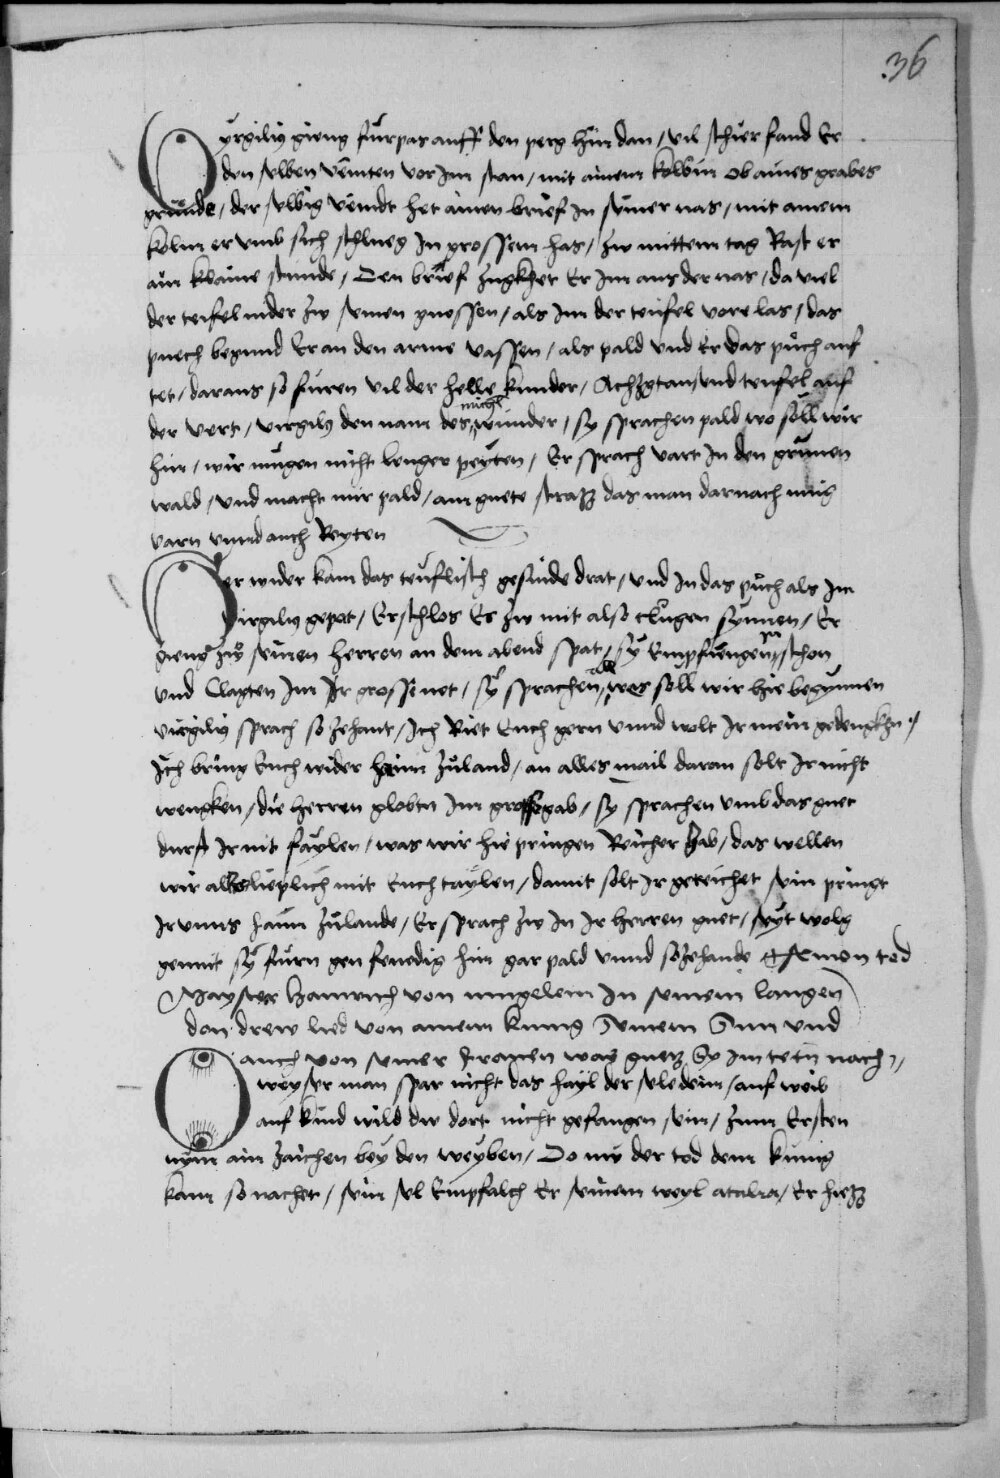 36
Vyrgiliᵍ gieng fürpas auff den perg hin dan / vil schier fand Er
den selben veinten vor Im stan / mit ainem kolben ob aines grabes
grunde / der selbig veindt het ainen brief In seiner nas / mit ainem
kolm er vmb sich schlueg In grossem has / zw mittem tag Rast er
ain klaine stunde / Den brief zugkhet Er Im aus der nas / da viel
der teufel nider zw seinen gnossen / als Im der teufel vore las / das
puech begund Er an den arme vassen / als pald vnd Er das puch auf
tet / daraus so furen vil der helle kunder / Achzgtausend teufel auf
der vert / virgilᵍ den nam des michl wunder / sy sprachen pald wo söll wir
hin / wir mugen nicht lenger peyten / Er sprach vart In den grunen
wald / vnd macht mir pald / ain guete straß das man darnach mug
varn vnnd auch Reyten
Her wider kam das teuflisch gesinde drat / vnd In das puch als Im
virgiliᵍ gepot / Er schlos Es zw mit also clugen synnen / Er
gieng zw seinen herren an dem abend spat / sy Empfiengen In schon
vnd Clagten Im Ir grosse not / sy sprachen all was soll wir hie begynnen
virgiliᵍ sprach so zehant / Ich Riet Euch gern vnnd wolt Ir mein gedengkhen /
Ich bring Euch wider haim zuland / an alles mail daran solt Ir nicht
wengken / die herren globtn Im gros gab / sy sprachen vmb das guet
durft Ir nit faylen / was wir hie pringen Reicher hab / das wellen
wir alls lieplich mit Euch taylen / damit solt Ir gereichet sein pringt
Ir vnns haim zulande / Er sprach zw In Ir herren guet / seyt wolg
gemut sy furn gen fenedig hin gar pald vnnd sozehande
Mayster hainrich von mugelein In seinem langen
don drew lied von ainem kunig Seinem Sun vnd
auch von seiner frawen was guetz Sy im tetn nach seinen tod
O weyser man spar nicht das hayl der sele dein / auf weib
auf kind wild dw dort nicht gefangen sein / zum Ersten
nym ain zaichen bey den weyben / Do nw der tod dem kunig
kam so nachet / sein sel Empfalch Er seinem weyb / Er hieß